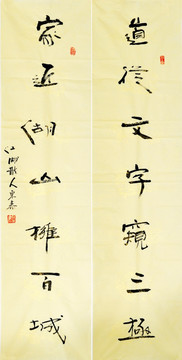 道從文字窺三極
家近湖山擁百城
江湖散人東春